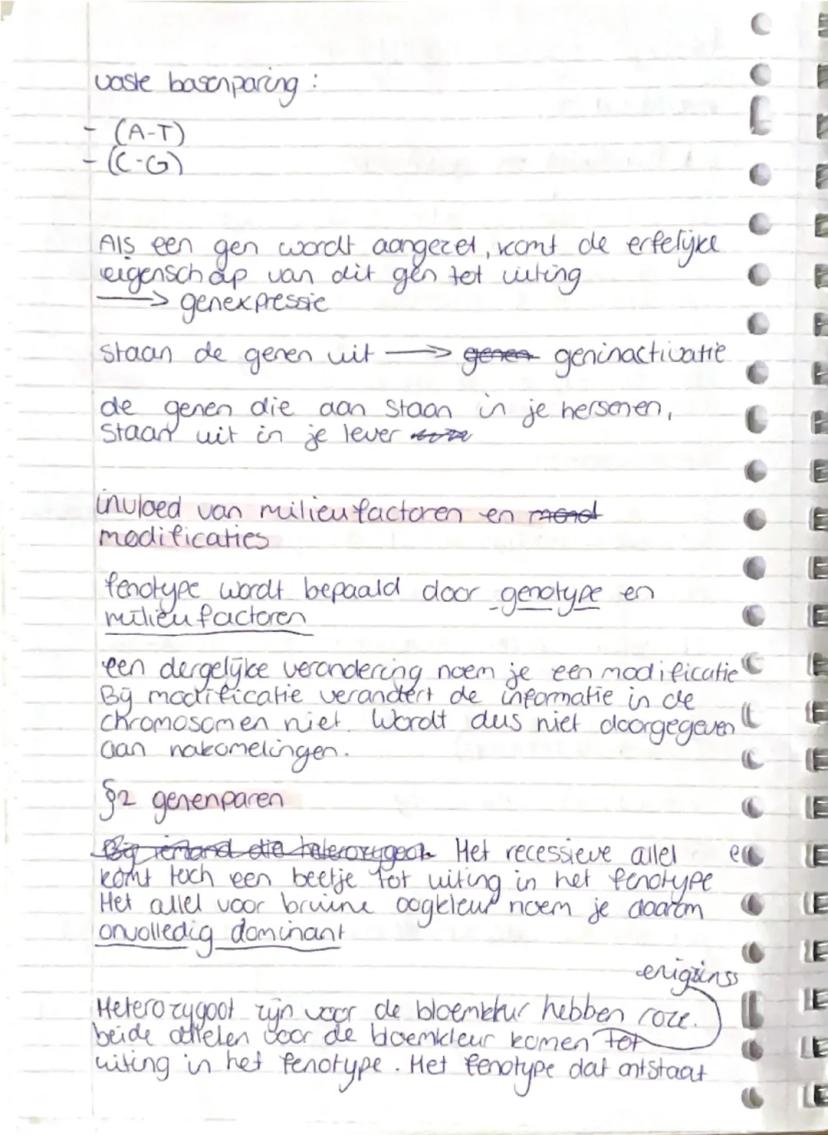 vaste basenparing :
- (A-T)
- (C-G)
Als een gen wordt aangezet, komt de erfelijke
eigenschap van dit gen tot uiting
⟶ genexpressie
staan de genen uit ⟶ genen geninactivatie
de genen die aan staan in je hersenen,
staan uit in je lever
invloed van milieufactoren en
modificaties
fenotype wordt bepaald door genotype en
milieufactoren
een dergelijke verandering noem je een modificatie
Bij modificatie verandert de informatie in de
chromosomen niet. Wordt dus niet doorgegeven
aan nakomelingen.
§2 genenparen
Bij iemand die heterozygoot Het recessieve allel
komt toch een beetje tot uiting in het fenotype
Het allel voor bruine oogkleur noem je daarom
onvolledig dominant
enigzinss
Heterozygoot zijn voor de bloemklur hebben roze.
beide allelen voor de bloemkleur komen tot
uiting in het fenotype. Het fenotype dat ontstaat